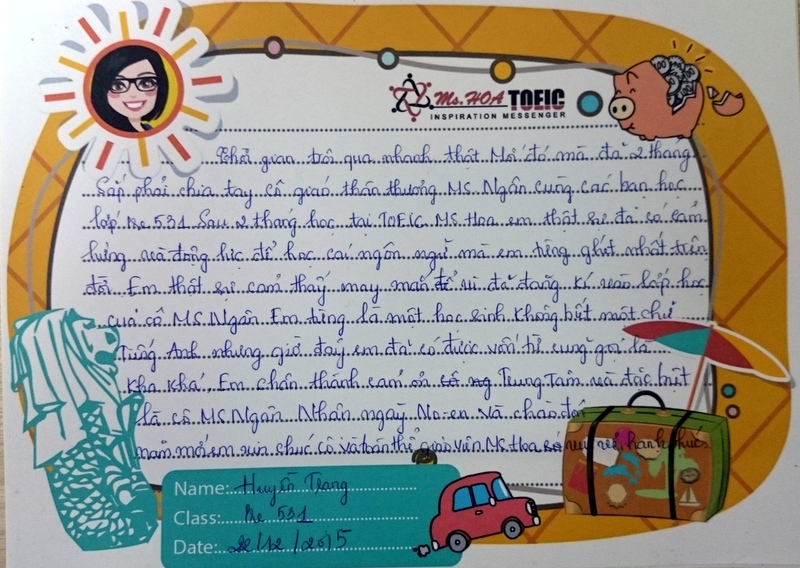 Ms. HOA TOEIC
INSPIRATION MESSENGER
Thời gian trôi qua nhanh thật. Mới đó mà đã 2 tháng
Sắp phải chia tay cô giáo thân thương MS. Ngân cùng các bạn học
lớp Be 531. Sau 2 tháng học tại TOEIC MS Hoa em thật sự đã có cảm
hứng và động lực để học cái ngôn ngữ mà em từng ghét nhất trên
đời. Em thật sự cảm thấy may mắn vì đã đăng kí vào lớp học
của cô MS Ngân. Em từng là một học sinh không biết một chữ
Tiếng Anh nhưng giờ đây em đã có được vốn từ cũng gọi là
Kha Khá. Em chân thành cảm ơn Trung Tâm và đặc biệt
là cô MS Ngân. Nhân ngày No-en và chào đón
năm mới em xin chúc cô và toàn thể giáo viên MS Hoa vui vẻ, hạnh phúc.
Name: Huyền Trang
Class: Be 531
Date: 22/12/2015